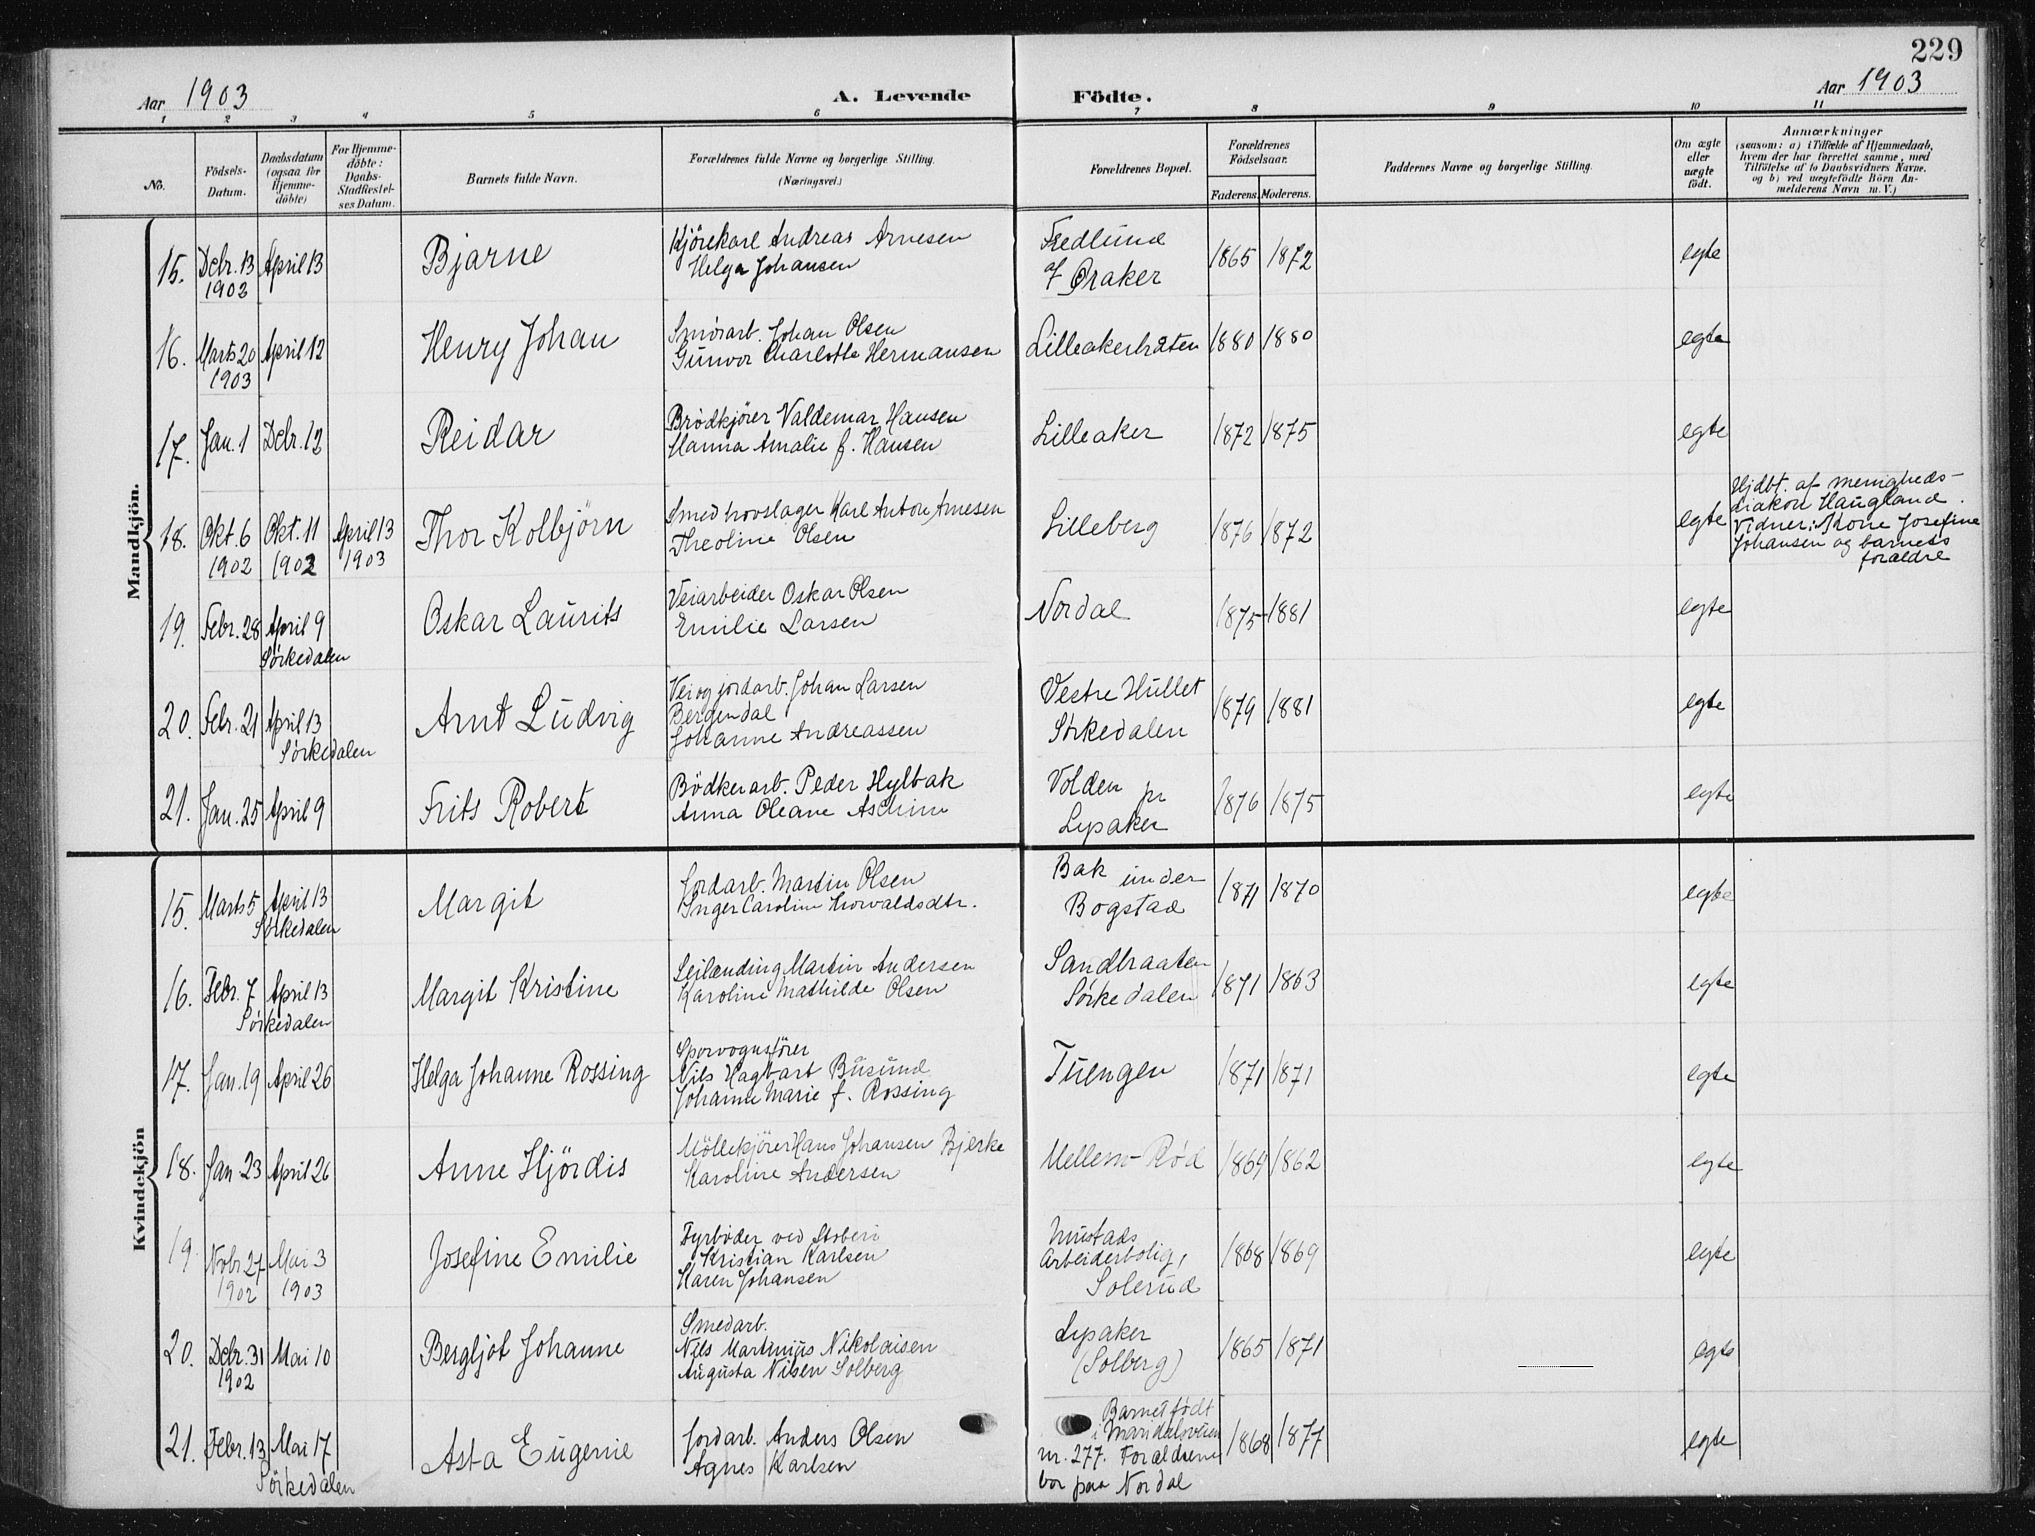 229
Aar 1903
A. Levende
Födte.
Aar 1903
1 2 3 4 5 6 7 8 9 10 11
No.
Födsels-
Datum.
Daabsdatum
(ogsaa for
Hjemme-
döbte)
For Hjemme-
döbte:
Daabs-
Stadfæstel-
ses Datum.
Barnets fulde Navn.
Forældrenes fulde Navne og borgerlige Stilling.
(Næringsvei.)
Forældrenes Bopæl.
Forældrenes
Födselsaar.
Faderens. Moderens.
Faddernes Navne og borgerlige Stilling.
Om ægte
eller
uægte
født.
Anmærkninger
(seasom: a) i Tilfælde af Hjemmedaab,
hvem der har forrettet samme, med
Tilföielse af to Daabsvidners Navne,
og b) ved uægtefödte Börn An-
melderens Navn m. V.)
Mandkjön.
15. Debr. 13 April 13 Bjarne Kjörekarl Andreas Arnesen Fredlund 1865 1872 egte
1902 Helga Johansen af Øraker
16. Marts 20 April 12 Henry Johan Smörarb. Johan Olsen Lilleakerbraten 1880 1880 egte
1903 Gunvor Charlotte Hermansen
17. Jan. 1 Debr. 12 Reidar Brödkjörer Valdemar Hansen Lilleaker 1872 1875 egte
Hanna Amalie f. Hansen
18. Okt. 6 Okt. 11 April 13 Thor Kolbjörn Smed hovslager Karl Anton Arnesen Lilleberg 1876 1872 egte
1902 1902 1903 Theoline Olsen
Hjdbt. af menigheds-
diakon Haugland.
Vidner: Kone Josefine
Johansen og barnets
forældre
19. Febr. 28 April 9 Oskar Laurits Veiarbeider Oskar Olsen Nordal 1875 1881 egte
Sörkedalen Emilie Larsen
20. Febr. 21 April 13 Arnt Ludvig Vei og jordarb. Johan Larsen Vestre Hullet 1879 1881 egte
Sörkedalen Bergendal Sörkedalen
Johanne Andreassen
21. Jan. 25 April 9 Frits Robert Bödkerarb. Peder Hylbak Volden pr 1876 1875 egte
Anna Oleane Aschim Lysaker
Kvindekjön
15. Marts 5 April 13 Margit Jordarb. Martin Olsen Bak under 1871 1870 egte
Sörkedalen Inger Caroline Thorvaldsdtr. Bogstad
16. Febr. 7 April 13 Margit Kristine Leilænding Martin Andersen Sandbraaten 1871 1863 egte
Sörkedalen Karoline Mathilde Olsen Sörkedalen
17. Jan. 19 April 26 Helga Johanne Rossing Sporvognsförer Tuengen 1871 1871 egte
Nils Hagbart Busund
Johanne Marie f. Rossing
18. Jan 23 April 26 Anne Hjördis Möllekjörer Hans Johansen Bjerke Mellem-Röd 1864 1862 egte
Karoline Andersen
19. Nobr. 27 Mai 3 Josefine Emilie Fyrböder ved Stoberi Mustads 1868 1869 egte
1902 1903 Kristian Karlsen Arbeiderbolig,
Karen Johansen Solerud
20. Debr. 31 Mai 10 Bergljot Johanne Smedarb. Lysaker 1865 1871 egte
1902 Nils Martinius Nikolaisen (Solberg)
Augusta Nilsen Solberg
21. Febr. 13 Mai 17 Asta Eugenie Jordarb. Anders Olsen Barnet födt 1868 1877 egte
Sörkedalen Agnes Karlsen i Maridalsveien
nr. 277. Forældrene
bor paa Nordal